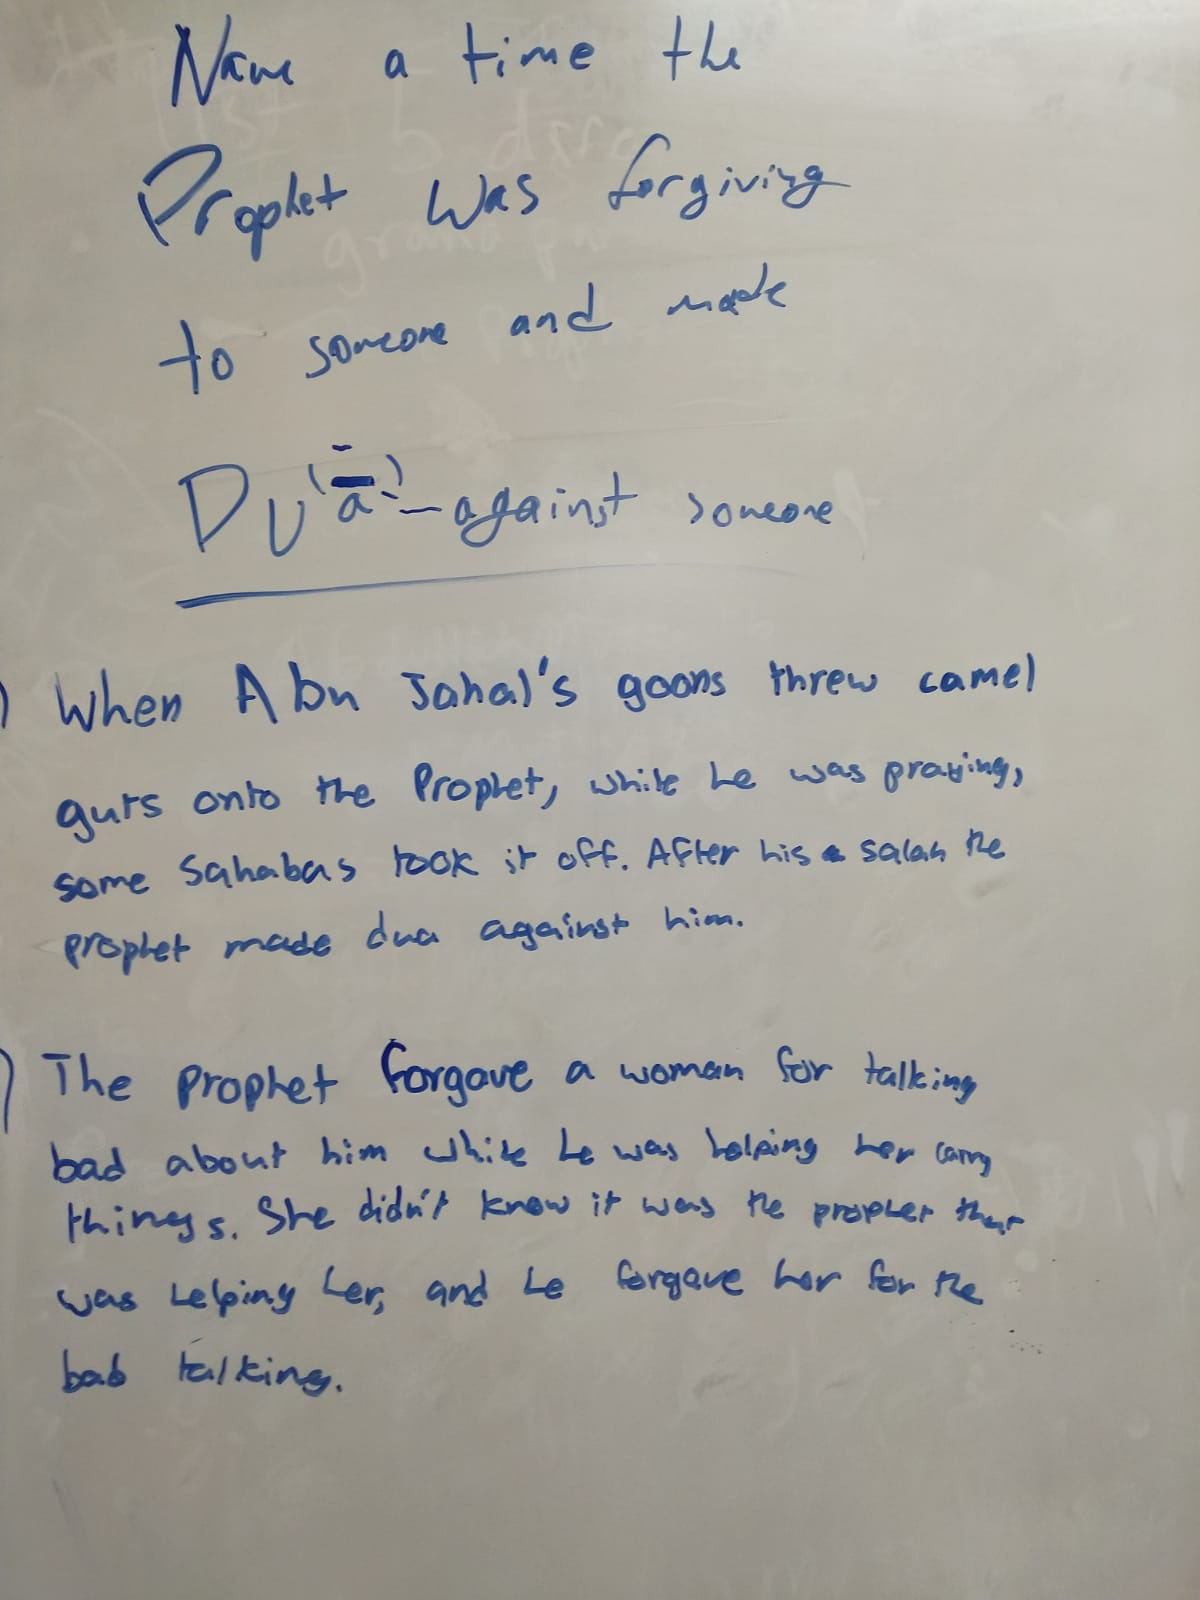 Name a time the
Prophet was forgiving
to someone and made
Du(ā) - against someone
) When Abu Jahal's goons threw camel
guts onto the Prophet, while he was praying,
some Sahabas took it off. After his salah the
prophet made dua against him.
) The prophet forgave a woman for talking
bad about him while he was helping her carry
things. She didn't know it was the prophet that
was helping her, and he forgave her for the
bab talking.